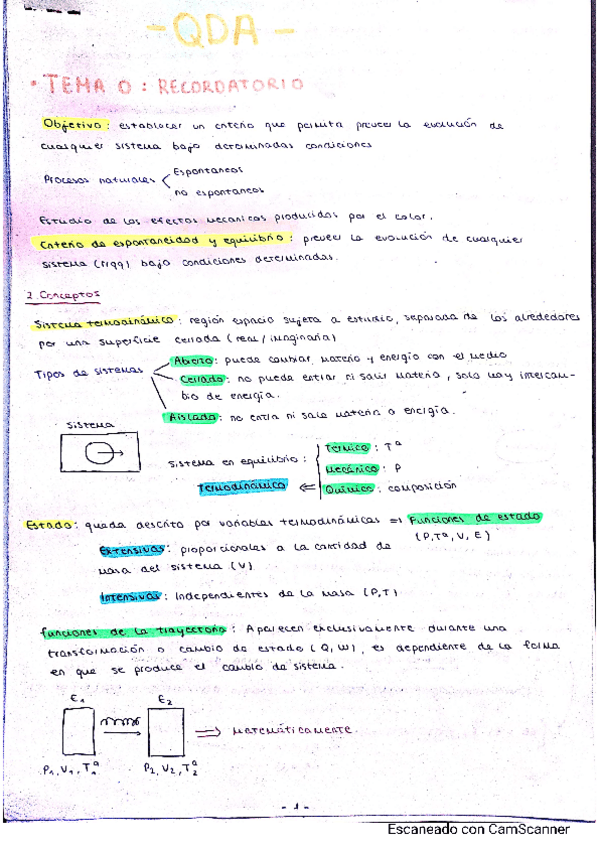 - QDA -
• TEMA 0 : RECORDATORIO
Objetivo : establecer un criterio que permita preveer la evolución de
cualquier sistema bajo determinadas condiciones
Procesos naturales < Espontaneos
no espontaneos
Estudio de los efectos mecanicos producidos por el calor.
Criterio de espontaneidad y equilibrio : preveer la evolución de cualquier
sistema (riqq) bajo condiciones determinadas.
2. Conceptos
Sistema termodinámico : región espacio sujeta a estudio, separada de los alrededores
por una superficie cerrada (real / imaginaria)
Tipos de sistemas
Abierto : puede cambiar materia y energía con el medio
Cerrado : no puede entrar ni salir materia, solo hay intercam-
bio de energía.
Aislado : no entra ni sale materia o energía.
Sistema
Sistema en equilibrio :
Térmico : Tª
Mecánico : P
Termodinámico ⇐ Químico : composición
Estado : queda descrito por variables termodinámicas ⇒ Funciones de estado
(P, Tª, V, E)
Extensivas : proporcionales a la cantidad de
masa del sistema (V)
Intensivas : Independientes de la masa (P,T)
funciones de la trayectoria : Aparecen exclusivamente durante una
transformación o cambio de estado (Q, W), es dependiente de la forma
en que se produce el cambio de sistema.
E₁ E₂
⇒ matemáticamente
P₁, V₁, T₁ª P₂, V₂, T₂ª
- 1 -
Escaneado con CamScanner